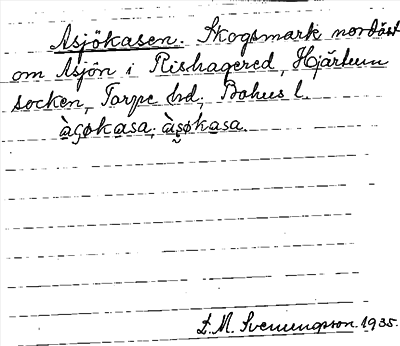 Asjökasen. Skogsmark nordöst
om Asjön i Rishagered, Hjärtum
socken, Torpe hd, Bohus l.
àçøkasa, àʂøkasa.
S. M. Svenungsson. 1935.